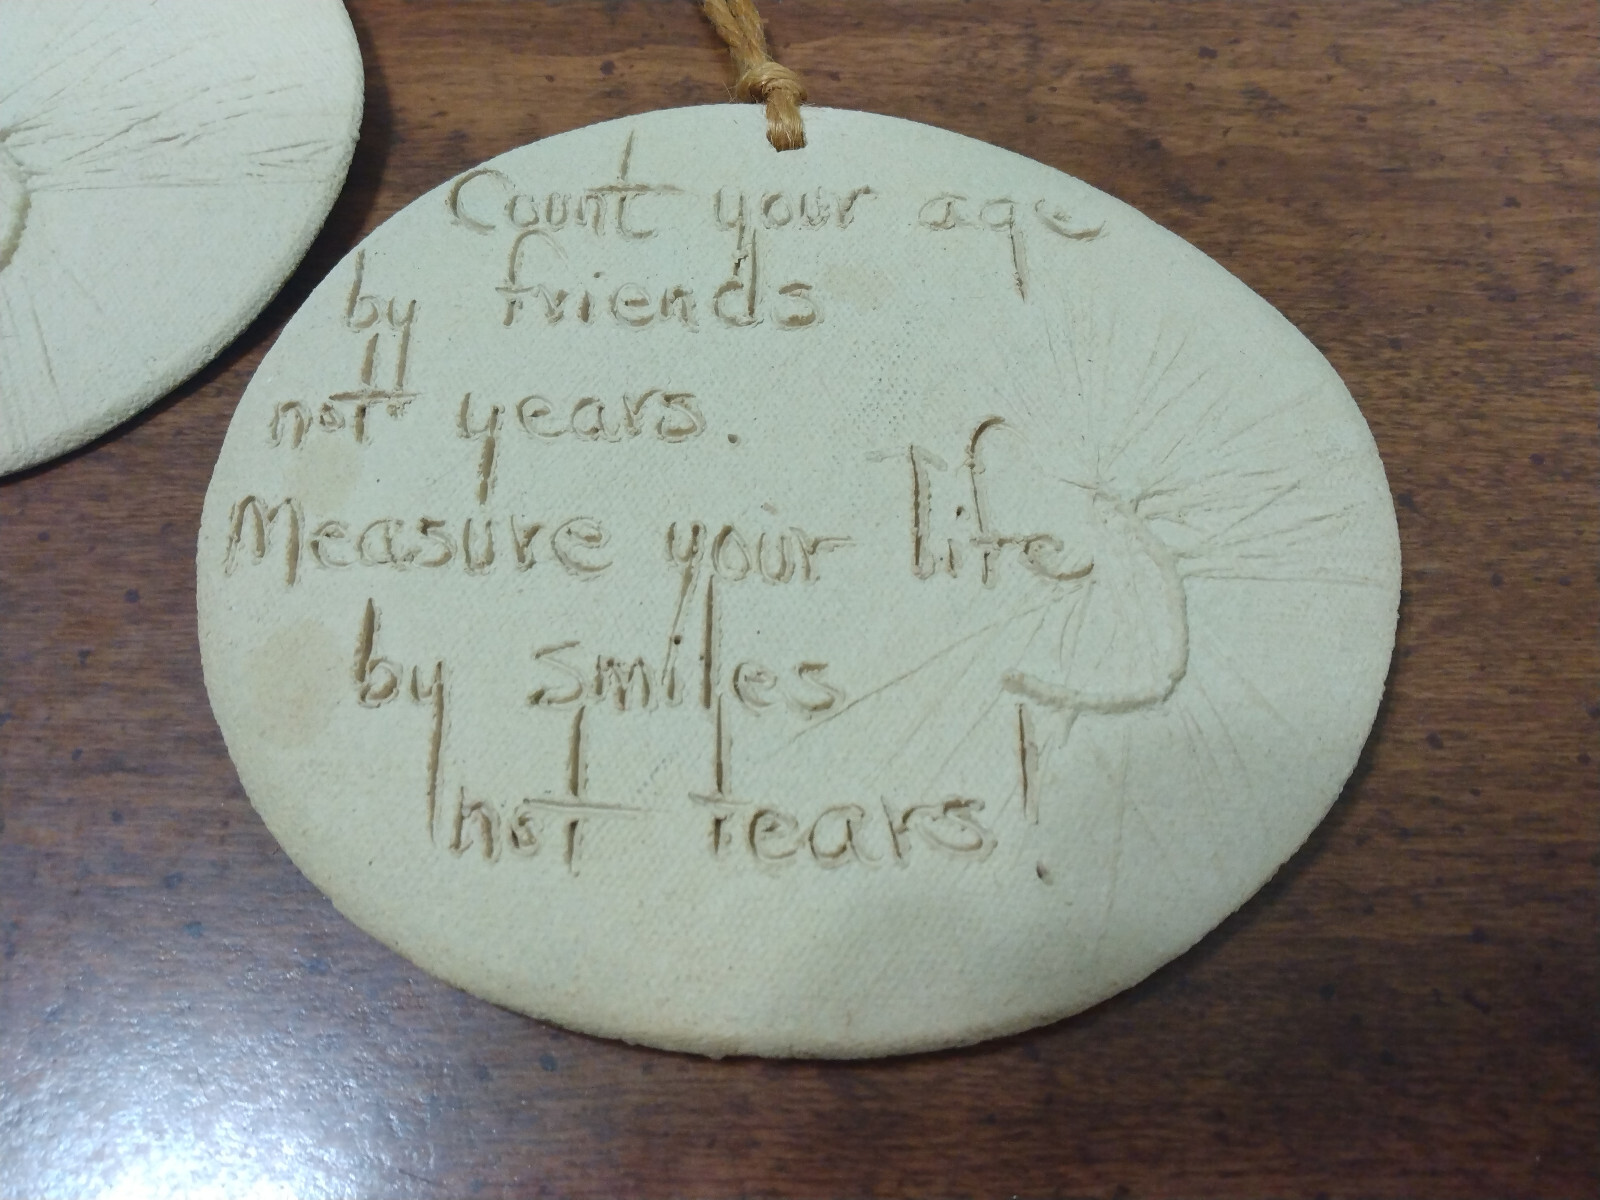 Count your age
by friends
not years.
Measure your life
by smiles
not tears!